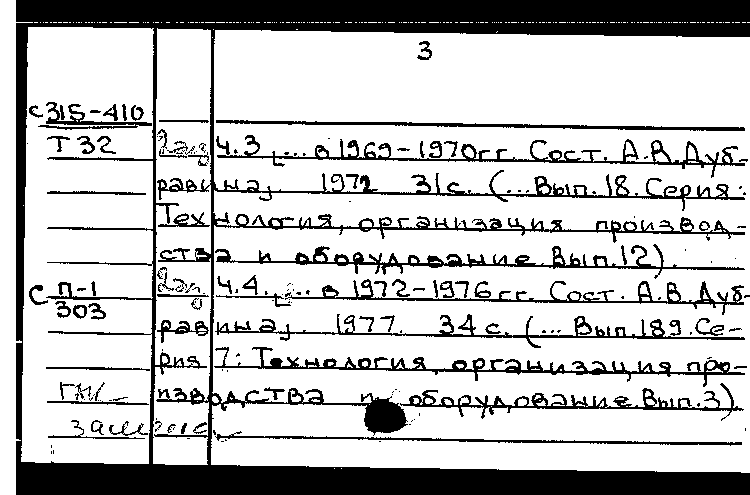 3
С 315-410
Т 32
Ч.3 [... в 1969-1970гг. Сост. А.В.Дуб-
равина]. 1972 31с. (...Вып.18.Серия:
Технология, организация производ-
ства и оборудование. Вып.12).
С П-1
303
Ч.4. [... в 1972-1976гг. Сост. А.В.Дуб-
равина]. 1977. 34с. (... Вып.189.Се-
рия 7: Технология, организация про-
изводства и оборудование. Вып.3)